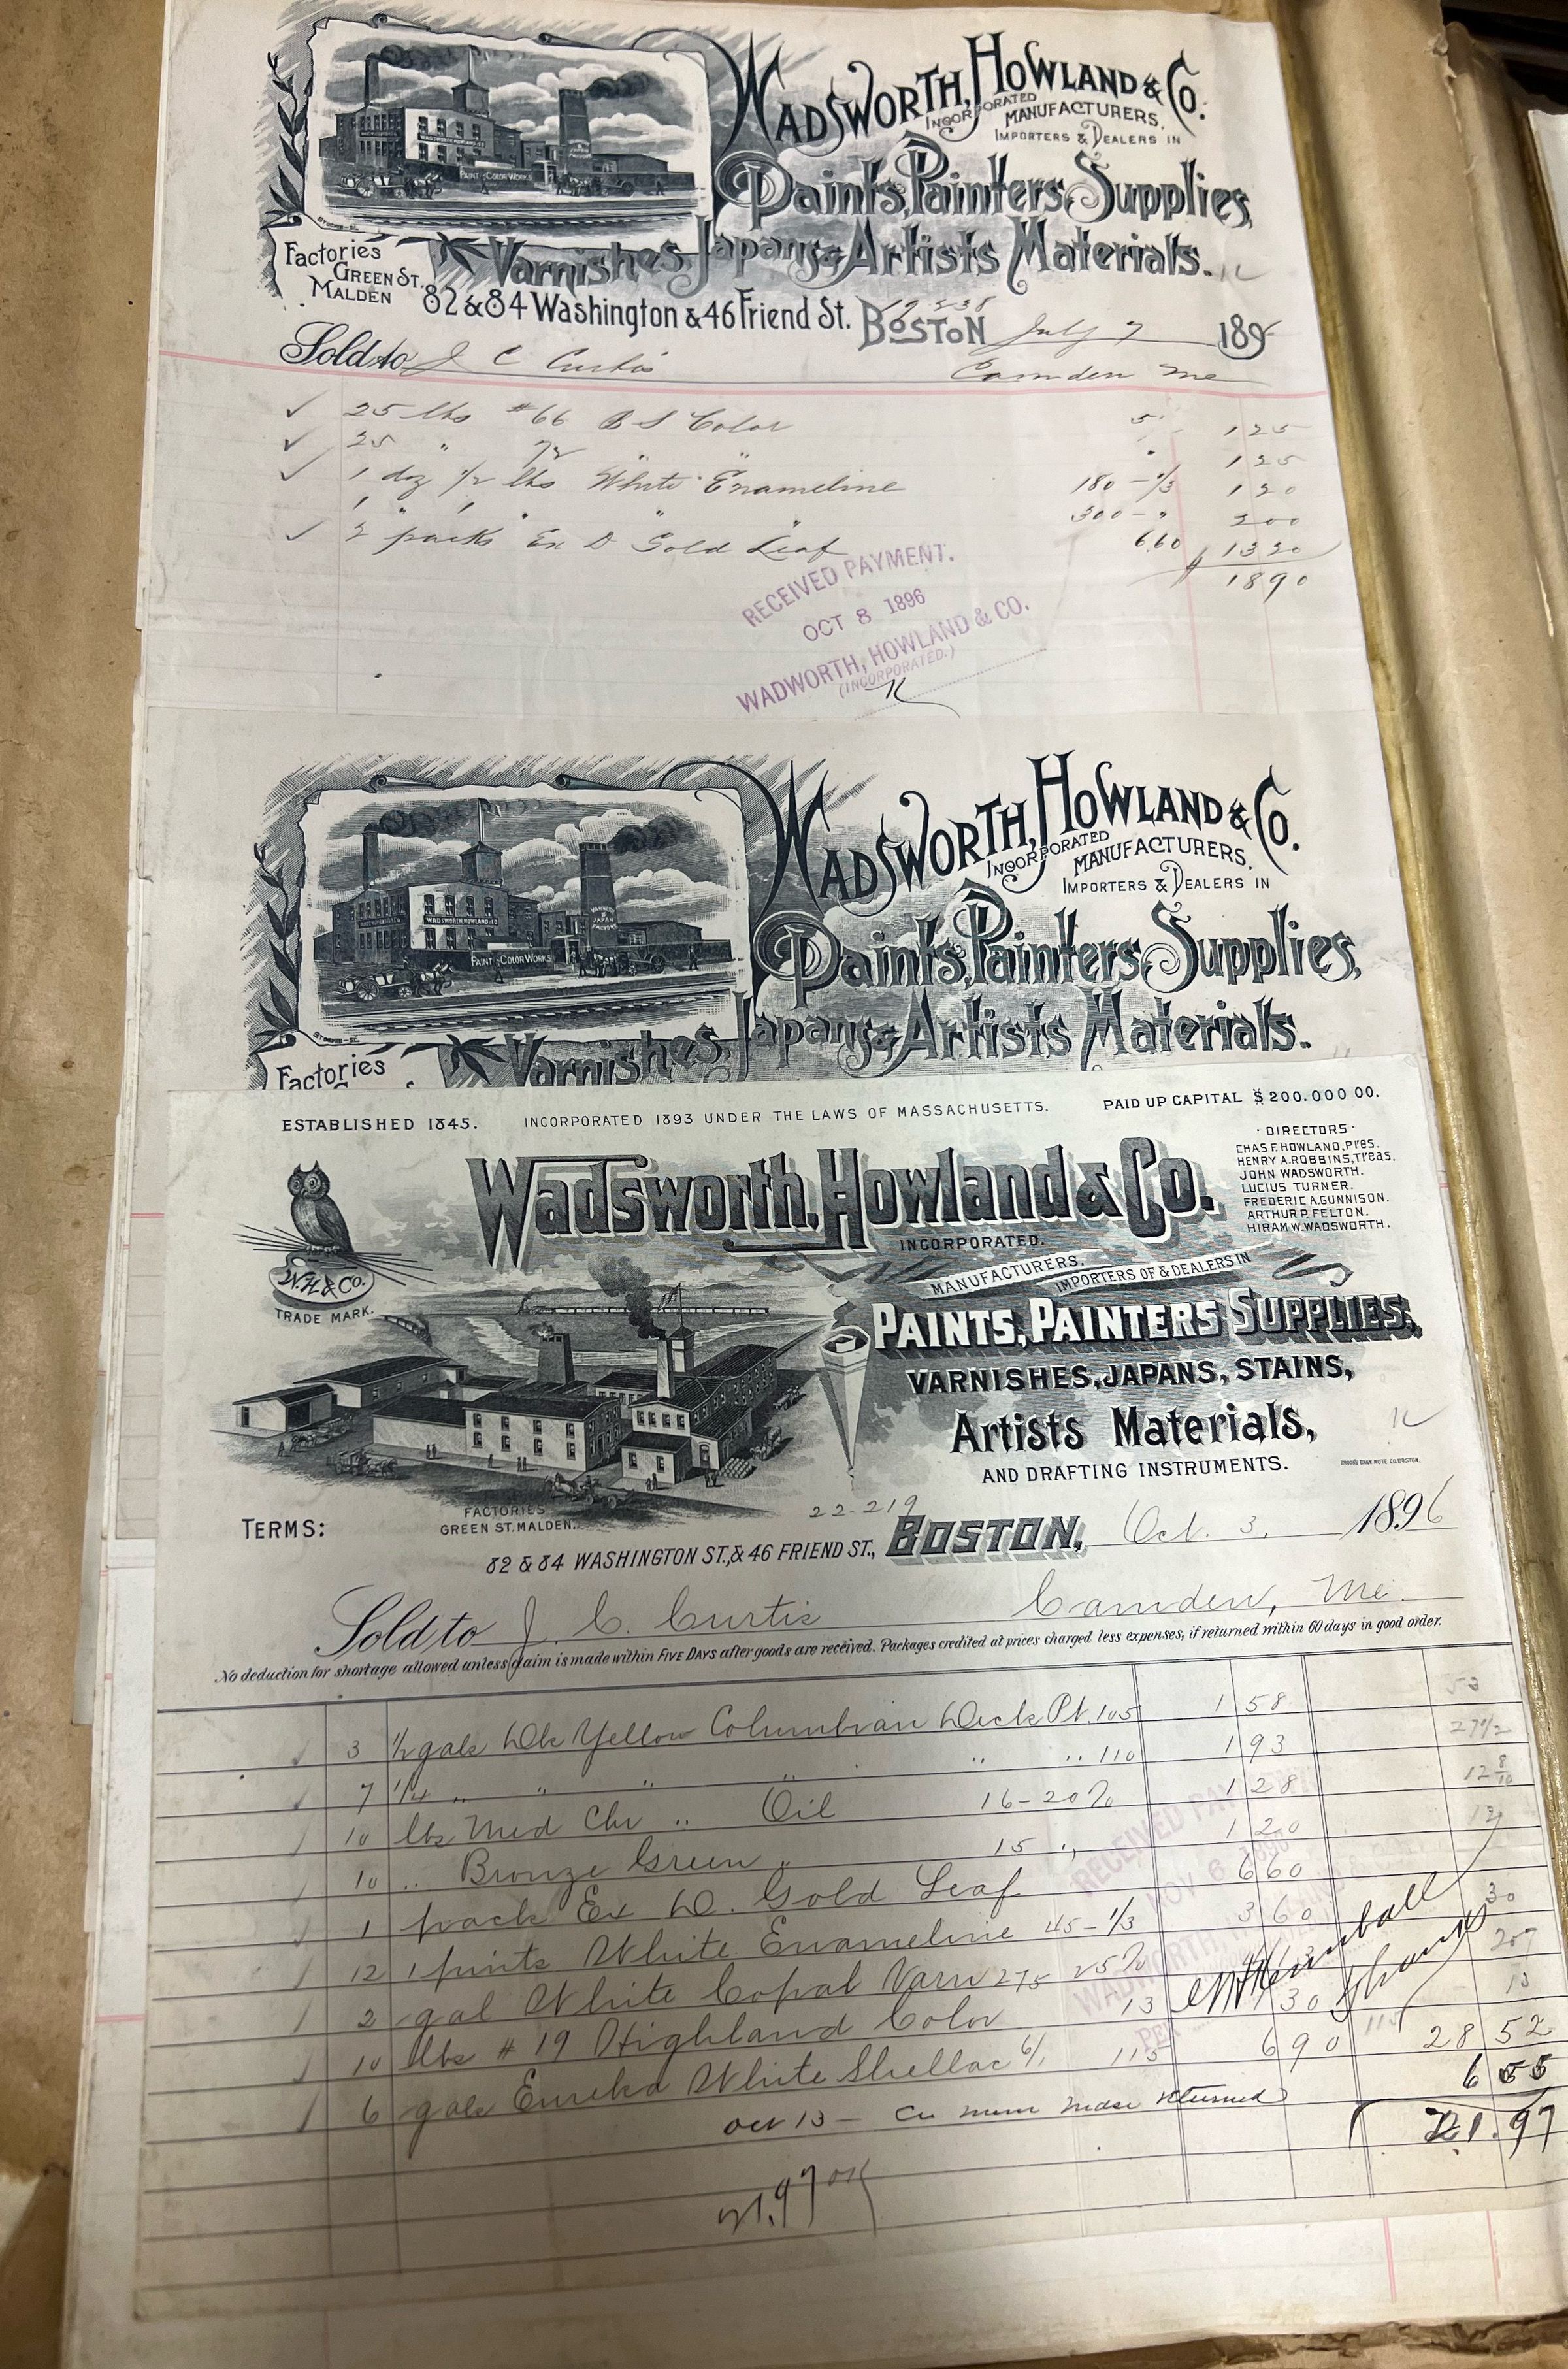 WADSWORTH, HOWLAND & CO.
INCORPORATED
MANUFACTURERS,
IMPORTERS & DEALERS IN
Paints, Painters Supplies,
Varnishes, Japans & Artists Materials.
WADSWORTH, HOWLAND & CO
PAINT & COLOR WORKS
Factories
GREEN ST.
MALDEN
82 & 84 Washington & 46 Friend St. BOSTON July 7 189
Sold to J C Curtis Camden Me
✓ 25 lbs #66 B S Color 5 125
✓ 25 " 72 " " 125
✓ 1 doz 1/2 lbs White Enameline 180 - 1/3 120
1 " 1 " " " 300 - " 200
✓ 2 packs Ex D Gold Leaf 660 1320
$ 1890
RECEIVED PAYMENT.
OCT 8 1896
WADWORTH, HOWLAND & CO.
(INCORPORATED.)
WADSWORTH, HOWLAND & CO.
INCORPORATED
MANUFACTURERS,
IMPORTERS & DEALERS IN
Paints, Painters Supplies,
Varnishes, Japans & Artists Materials.
WADSWORTH, HOWLAND & CO
VARNISH & JAPAN FACTORY
PAINT & COLOR WORKS
Factories
ESTABLISHED 1845. INCORPORATED 1893 UNDER THE LAWS OF MASSACHUSETTS. PAID UP CAPITAL $200.000 00.
· DIRECTORS ·
CHAS F. HOWLAND, Pres.
HENRY A. ROBBINS, Treas.
JOHN WADSWORTH.
LUCIUS TURNER.
FREDERIC A. GUNNISON.
ARTHUR P. FELTON.
HIRAM W. WADSWORTH.
Wadsworth, Howland & Co.
INCORPORATED.
W. H & CO.
TRADE MARK.
MANUFACTURERS. IMPORTERS OF & DEALERS IN
PAINTS, PAINTERS SUPPLIES,
VARNISHES, JAPANS, STAINS,
Artists Materials,
AND DRAFTING INSTRUMENTS.
FACTORIES
GREEN ST. MALDEN.
TERMS:
22-219
82 & 84 WASHINGTON ST., & 46 FRIEND ST., BOSTON, Oct. 3. 1896
Sold to J. C. Curtis Camden, Me.
No deduction for shortage allowed unless claim is made within FIVE DAYS after goods are received. Packages credited at prices charged less expenses, if returned within 60 days in good order.
3 1/2 gals Dk Yellow Columbian Deck Pt. 105 1 58
7 1/4 " " " " " " 110 1 93 27 1/2
10 lbs Med Chr " Oil 16-20% 1 28 12 8/10
10 " Bronze Green " 15 " 1 20 12
1 pack Ex D. Gold Leaf 6 60
12 1 pints White Enameline 45-1/3 3 60 30
2 gal White Copal Varn 275 25% 207
10 lbs #19 Highland Color 13 1 30 13
6 gals Eureka White Shellac 6/1 115 6 90 115 28 52
Oct 13 - Cr mem mdse returned 6 55
21.97
21.97 OK
RECEIVED PAYMENT
NOV 6 1896
WADWORTH
PER